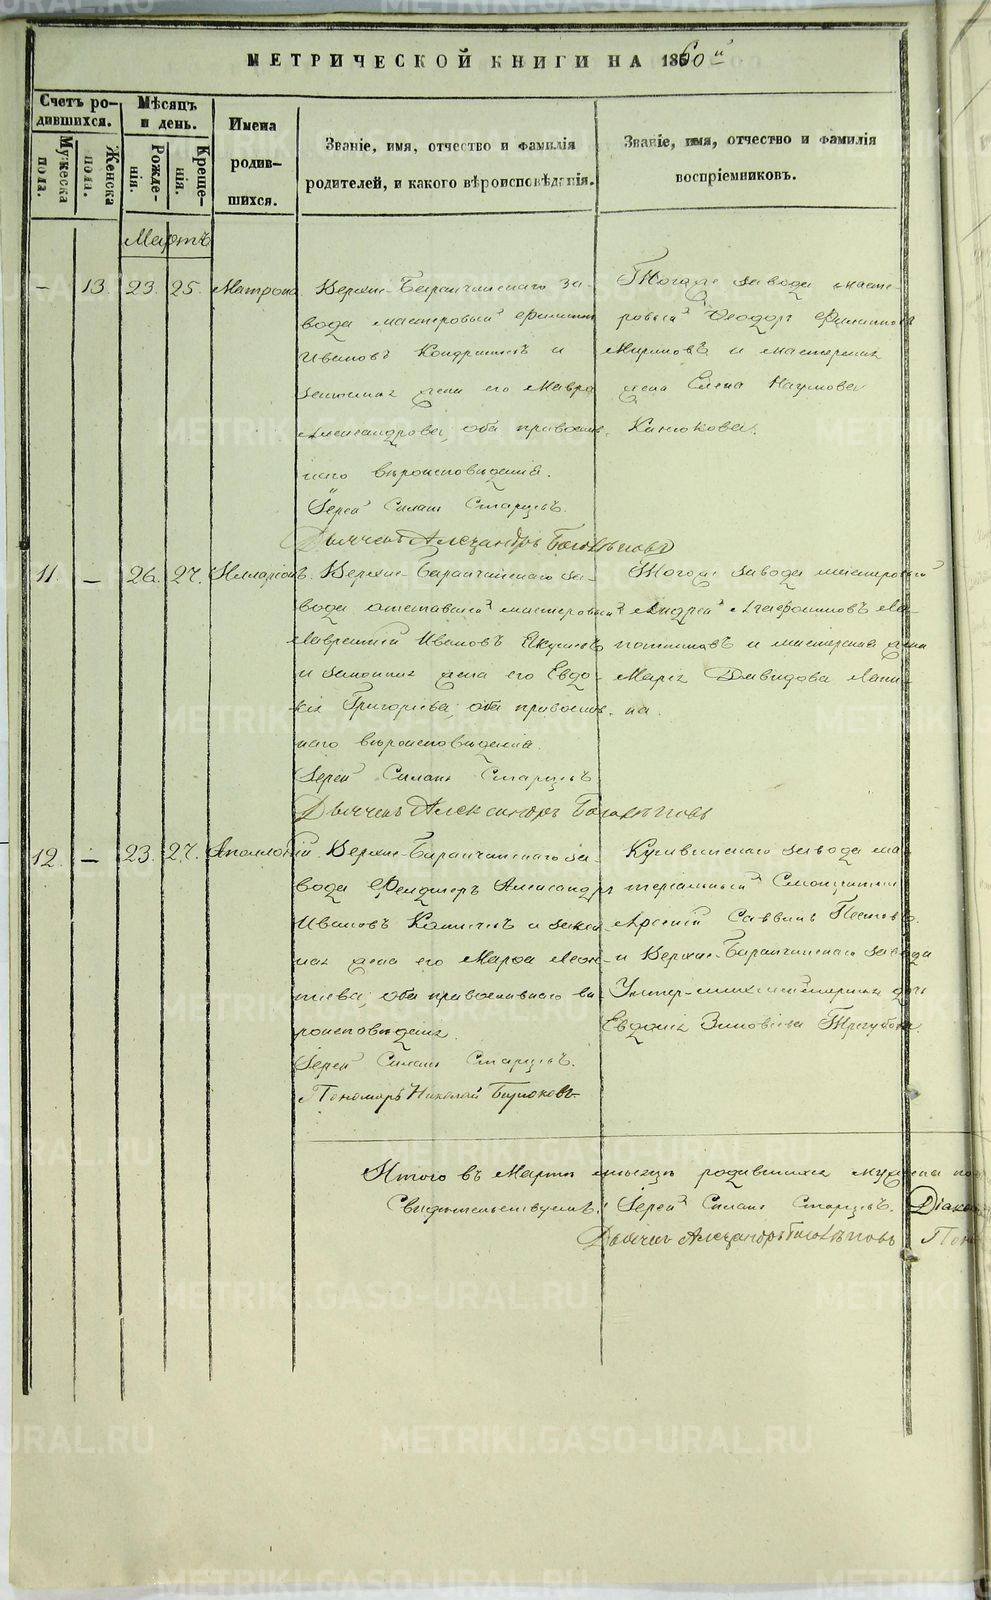 МЕТРИЧЕСКОЙ КНИГИ НА 1860й
Счетъ родившихся.
Мѣсяцъ и день.
Имена родившихся.
Званіе, имя, отчество и фамилія родителей, и какого вѣроисповѣданія.
Званіе, имя, отчество и фамилія воспріемниковъ.
Мужеска пола.
Женска пола.
Рожденія.
Крещенія.
Мартъ
— 13. 23. 25. Матрона
Верхне-Баранчинскаго за-
вода мастеровый Филиппъ
Ивановъ и
законная жена его Мавра
Александрова, оба православ-
наго вѣроисповѣданія.
Іерей Силинъ Старцевъ.
Дьячекъ Александръ
Тогоже завода масте-
ровый Ѳеодоръ Филипповъ
и мастерская
жена Елена Наумова
11. — 26. 27. Илларіонъ.
Верхне-Баранчинскаго за-
вода отставный мастеровый
Лаврентій Ивановъ Якушевъ
и законная жена его Евдо-
кія Григорьева, оба православ-
наго вѣроисповѣданія.
Іерей Силинъ Старцевъ
Дьячекъ Александръ
Тогоже завода мастеровый
Андрей Агафоновъ Ла-
потниковъ и мастерская жена
Марѳа Давидова
12. — 23. 27. Аполлоній.
Верхне-Баранчинскаго за-
вода Фельдшеръ Александръ
Ивановъ и закон-
ная жена его Марѳа Леон-
тьева, оба православнаго вѣ-
роисповѣданія.
Іерей Силинъ Старцевъ.
Пономарь Николай Бирюковъ
Кушвинскаго завода ма-
теріальный Смотритель
Арсеній Саввинъ Пестовъ
и Верхне-Баранчинскаго завода
дочь
Евдокія Зиновьева Трегубова
Итого въ Мартѣ мѣсяцѣ родившихся мужеска по
Свидѣтельствуемъ: Іерей Силинъ Старцевъ. Діако
Дьячекъ Александръ Поно
METRIKI.GASO-URAL.RU